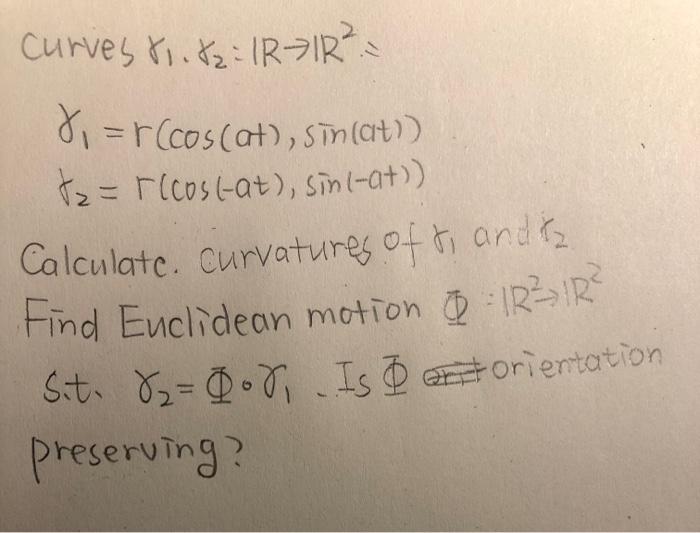 curves γ₁. γ₂ : ℝ→ℝ² :
γ₁ = r(cos(at), sin(at))
γ₂ = r(cos(-at), sin(-at))
Calculate. curvatures of γ₁ and γ₂
Find Euclidean motion Φ : ℝ²→ℝ²
s.t. γ₂ = Φ∘γ₁ . Is Φ orientation
preserving?